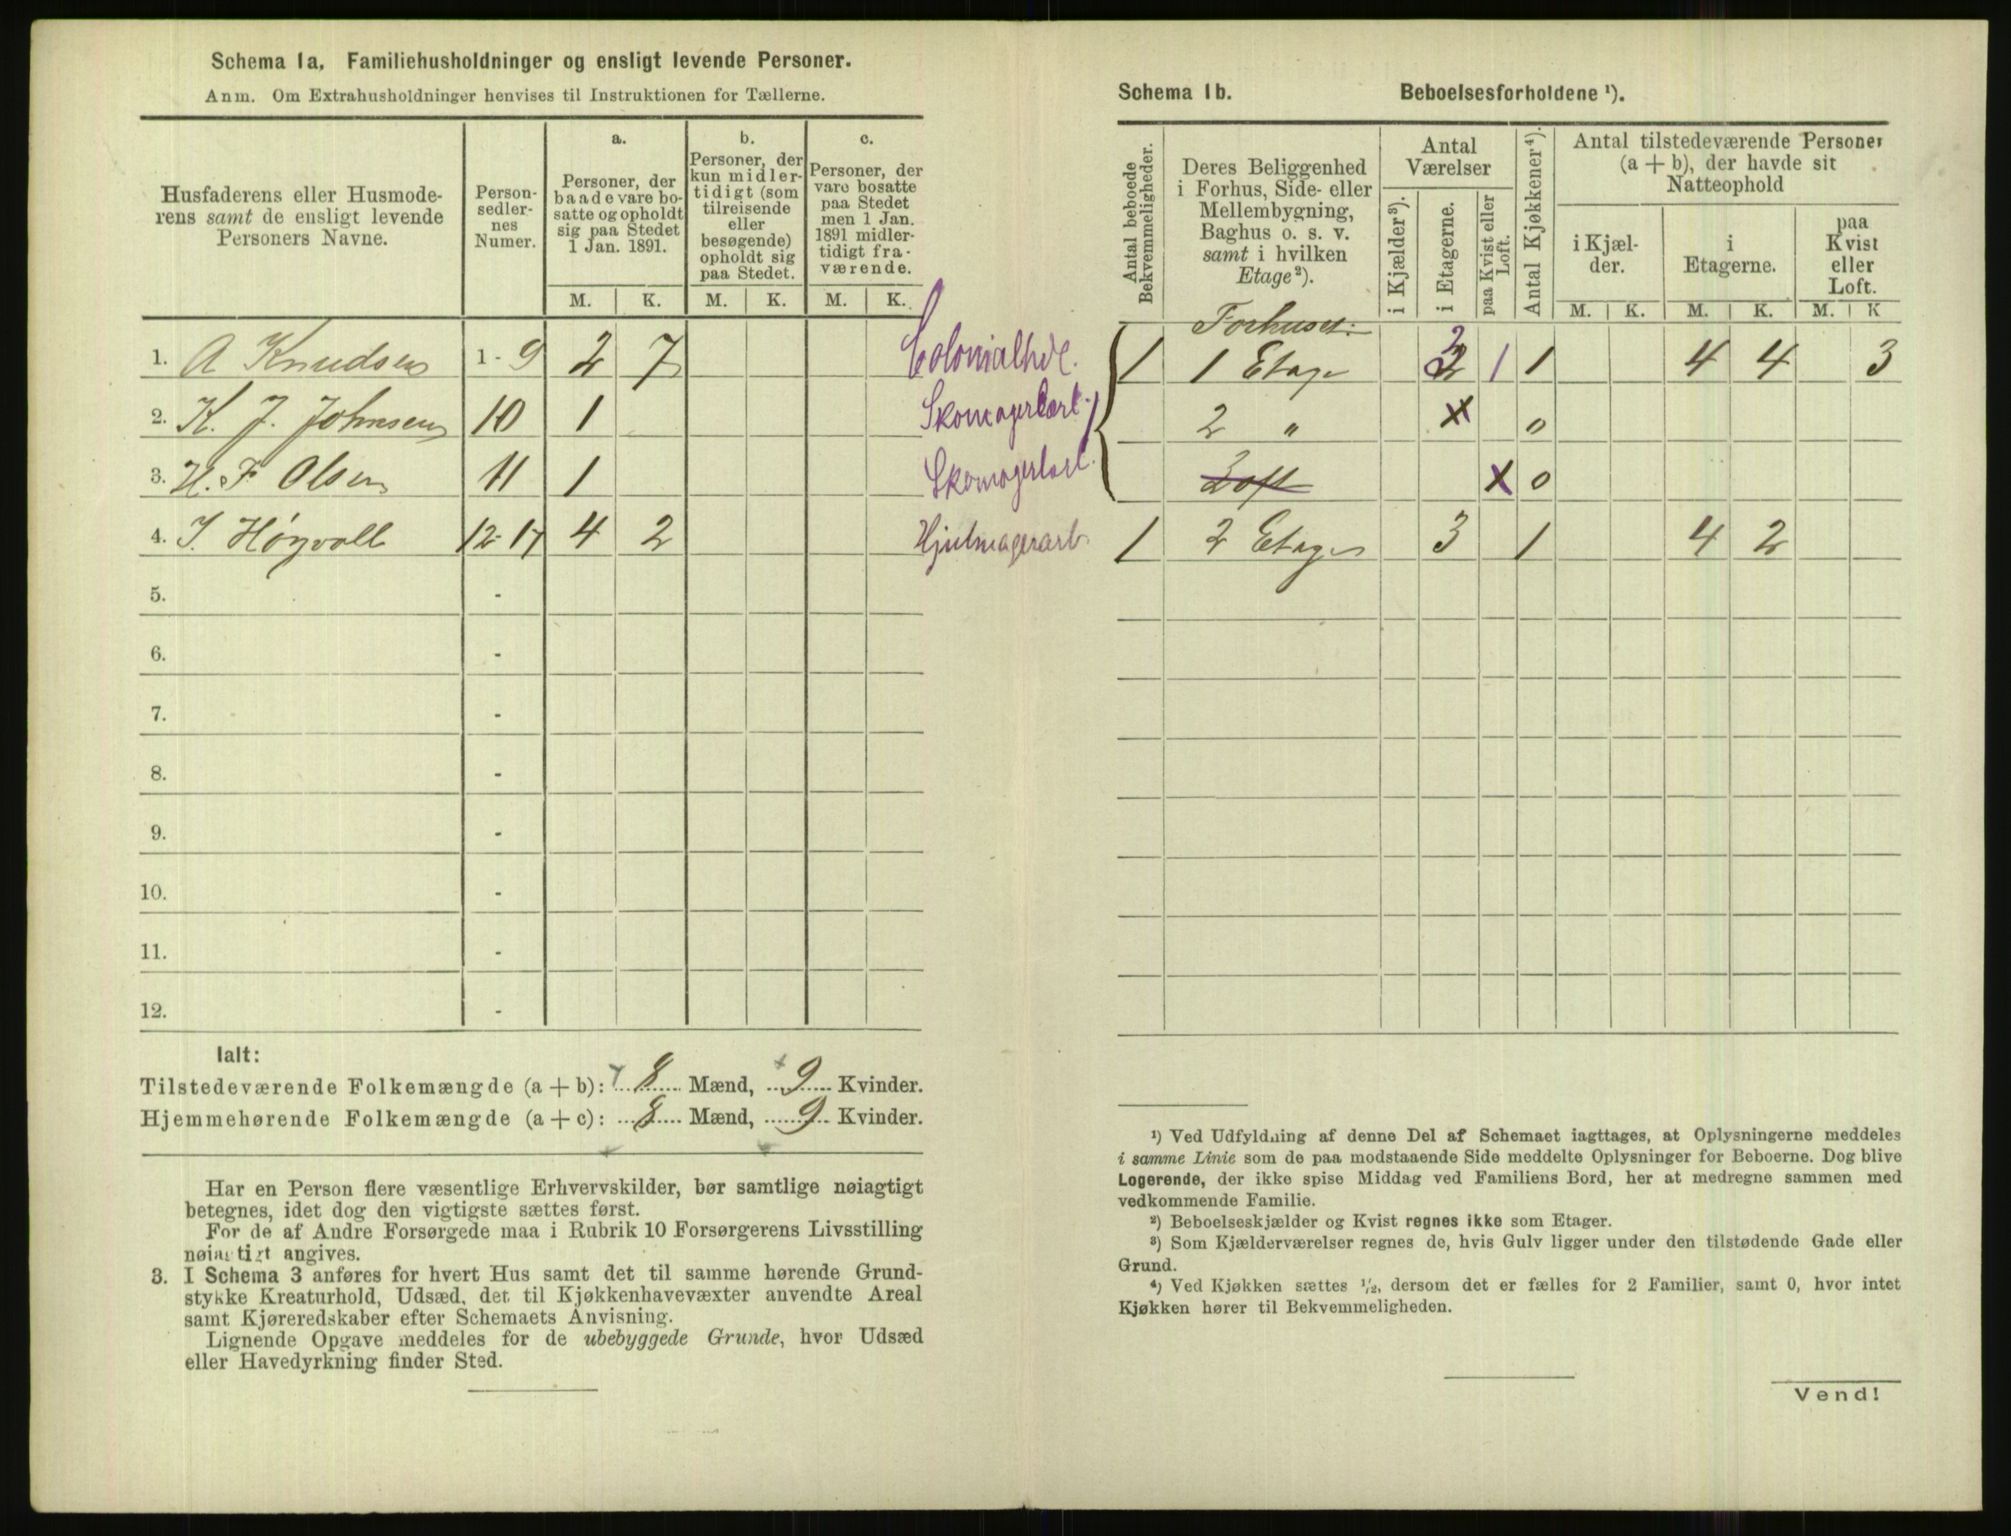 Schema 1a. Familiehusholdninger og ensligt levende Personer.
Anm. Om Extrahusholdninger henvises til Instruktionen for Tællerne.
Husfaderens eller Husmoderens samt de ensligt levende Personers Navne.
Personsedlernes Numer.
a.
Personer, der baade vare bosatte og opholdt sig paa Stedet 1 Jan. 1891.
b.
Personer, der kun midlertidigt (som tilreisende eller besøgende) opholdt sig paa Stedet.
c.
Personer, der vare bosatte paa Stedet men 1 Jan. 1891 midlertidigt fraværende.
M. K. M. K. M. K.
1. A Knudsen 1-9 2 7 Colonialhdl.
2. K. J. Johnsen 10 1 Skomagerarb.
3. H. F Olsen 11 1 Skomagerarb.
4. J. Høyvoll 12-17 4 2 Hjulmagerarb.
5. -
6. -
7. -
8. -
9. -
10. -
11. -
12. -
Ialt:
Tilstedeværende Folkemængde (a + b): 8 Mænd, 9 Kvinder.
Hjemmehørende Folkemængde (a + c): 8 Mænd, 9 Kvinder.
Har en Person flere væsentlige Erhvervskilder, bør samtlige nøiagtigt
betegnes, idet dog den vigtigste sættes først.
For de af Andre Forsørgede maa i Rubrik 10 Forsørgerens Livsstilling
nøiagtigt angives.
3. I Schema 3 anføres for hvert Hus samt det til samme hørende Grund-
stykke Kreaturhold, Udsæd, det til Kjøkkenhavevæxter anvendte Areal
samt Kjøreredskaber efter Schemaets Anvisning.
Lignende Opgave meddeles for de ubebyggede Grunde, hvor Udsæd
eller Havedyrkning finder Sted.
Schema 1b. Beboelsesforholdene ¹).
Antal beboede Bekvemmeligheder.
Deres Beliggenhed i Forhus, Side- eller Mellembygning, Baghus o. s. v. samt i hvilken Etage²).
Antal Værelser
i Kjælder³).
i Etagerne.
paa Kvist eller Loft.
Antal Kjøkkener⁴).
Antal tilstedeværende Personer (a + b), der havde sit Natteophold
i Kjælder.
i Etagerne.
paa Kvist eller Loft.
M. K. M. K. M. K
Forhuset:
1 1 Etage 2 1 1 4 4 3
2 " x 0
Loft x 0
1 2 Etage 3 1 4 2
¹) Ved Udfyldning af denne Del af Schemaet iagttages, at Oplysningerne meddeles
i samme Linie som de paa modstaaende Side meddelte Oplysninger for Beboerne. Dog blive
Logerende, der ikke spise Middag ved Familiens Bord, her at medregne sammen med
vedkommende Familie.
²) Beboelseskjælder og Kvist regnes ikke som Etager.
³) Som Kjælderværelser regnes de, hvis Gulv ligger under den tilstødende Gade eller
Grund.
⁴) Ved Kjøkken sættes ½, dersom det er fælles for 2 Familier, samt 0, hvor intet
Kjøkken hører til Bekvemmeligheden.
Vend!